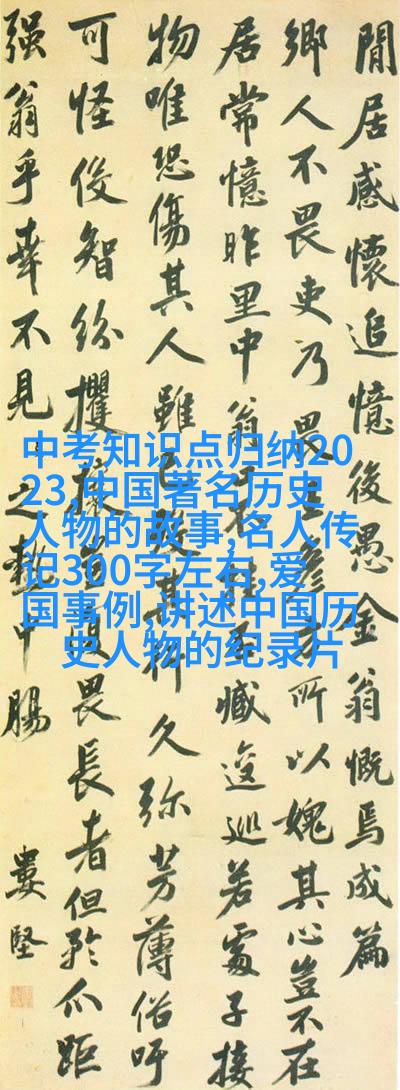 閒居感懷追憶後愚金翁慨焉成篇
鄉人不畏吏乃畏 所以媿其心豈不在
居常憶昨里中翁 臧逡巡若處子接
物唯恐傷其人雖 其 久弥芳薄俗吁
可怪伎智紛攫 畏長者但矜爪距
强翁乎幸不見 之熱中腸
婁堅
中考知识点归纳20
23,中国著名历史
人物的故事,名人传
记300字左右,爱
国事例,讲述中国历
史人物的纪录片